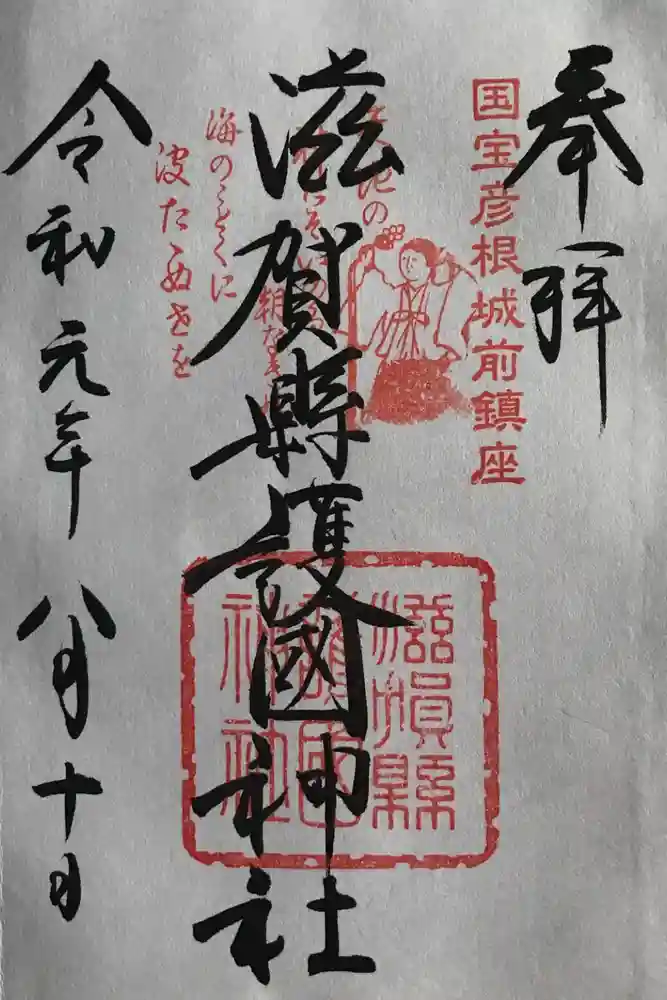 奉拝
国宝彦根城前鎮座
滋賀縣護國神社
地の
朝な
海のことくに
波たゝぬ世を
滋賀縣
護國
神社
令和元年八月十日